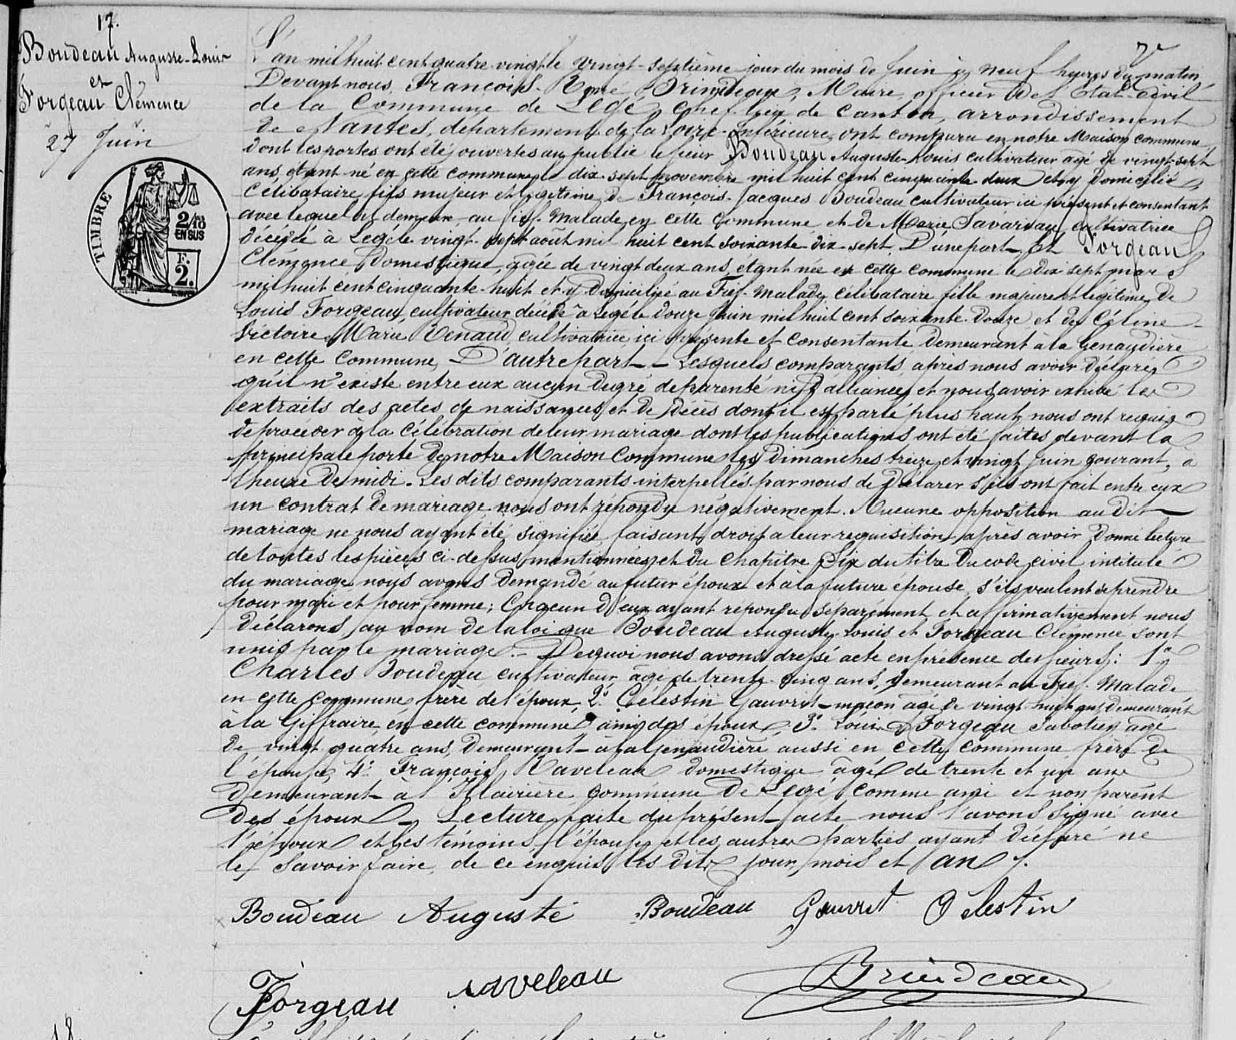 17.
Boudeau Auguste-Louis
et
Forgeau Clémence
27 Juin
TIMBRE
2/10
EN SUS
F.
2.
L'an mil huit cent quatre vingt le vingt-septième jour du mois de Juin à neuf heures du matin
Devant nous, François-René Brindeau, Maire, officier de l'Etat-Civil
de la Commune de Legé chef-lieu de canton, arrondissement
de Nantes, département de la Loire-Inférieure, ont comparu en notre Maison commune
dont les portes ont été ouvertes au public le sieur Boudeau Auguste-Louis cultivateur âgé de vingt-sept
ans, étant né en cette commune le dix-sept novembre mil huit cent cinquante deux et y domicilié
Célibataire, fils majeur et légitime de François-Jacques Boudeau cultivateur ici présent et consentant
avec lequel il demeure au Fief-Malade en cette Commune et de Marie Savariau cultivatrice
décédée à Legé le vingt sept août mil huit cent soixante dix-sept D'une part - Et Forgeau
Clémence Domestique, âgée de vingt deux ans, étant née en cette commune le dix sept mars
mil huit cent cinquante-huit et y domiciliée au Fief-Malade célibataire fille majeure et légitime de
Louis Forgeau cultivateur décédé à Legé le douze Juin mil huit cent soixante-douze et de Céline
Victoire Marie Renaud cultivatrice ici présente et consentante demeurant à la Genaudière
en cette Commune D'autre part - Lesquels comparants après nous avoir déclaré
qu'il n'existe entre eux aucun degré de parenté ni d'alliance et nous avoir exhibé les
extraits des actes de naissances et de décès dont il est parlé plus haut nous ont requis
de procéder à la célébration de leur mariage dont les publications ont été faites devant la
principale porte de notre Maison Commune les Dimanches treize et vingt Juin courant, à
l'heure de midi. Les dits comparants interpellés par nous de déclarer s'ils ont fait entre eux
un contrat de mariage nous ont répondu négativement. Aucune opposition au dit
mariage ne nous ayant été signifiée faisant droit à leur requisition, après avoir donné lecture
de toutes les pièces ci-dessus mentionnées et du chapitre Six du titre du code civil intitulé
du mariage, nous avons demandé au futur époux et à la future épouse, s'ils veulent se prendre
pour mari et pour femme; Chacun d'eux ayant répondu séparément et affirmativement nous
déclarons, au nom de la loi que Boudeau Auguste-Louis et Forgeau Clémence sont
unis par le mariage. - De quoi nous avons dressé acte en présence des sieurs: 1º
Charles Boudeau cultivateur âgé de trente-cinq ans, demeurant au Fief-Malade
en cette commune frère de l'époux, 2º Célestin Gauvrit maçon âgé de vingt huit ans demeurant
à la Giffraire, en cette commune ami des époux 3º Louis Forgeau Sabotier âgé
de vingt quatre ans, demeurant à la Genaudière aussi en cette commune frère de
l'épouse 4º François Raveleau domestique âgé de trente et un ans
demeurant à commune de Legé comme ami et non parent
des époux - Lecture faite du présent acte nous l'avons signé avec
l'époux et les témoins l'épouse et les autres parties ayant déclaré ne
le savoir faire, de ce enquis les dits jour, mois et an.
Boudeau Auguste Boudeau Gauvrit Célestin
Forgeau Raveleau Brindeau
18